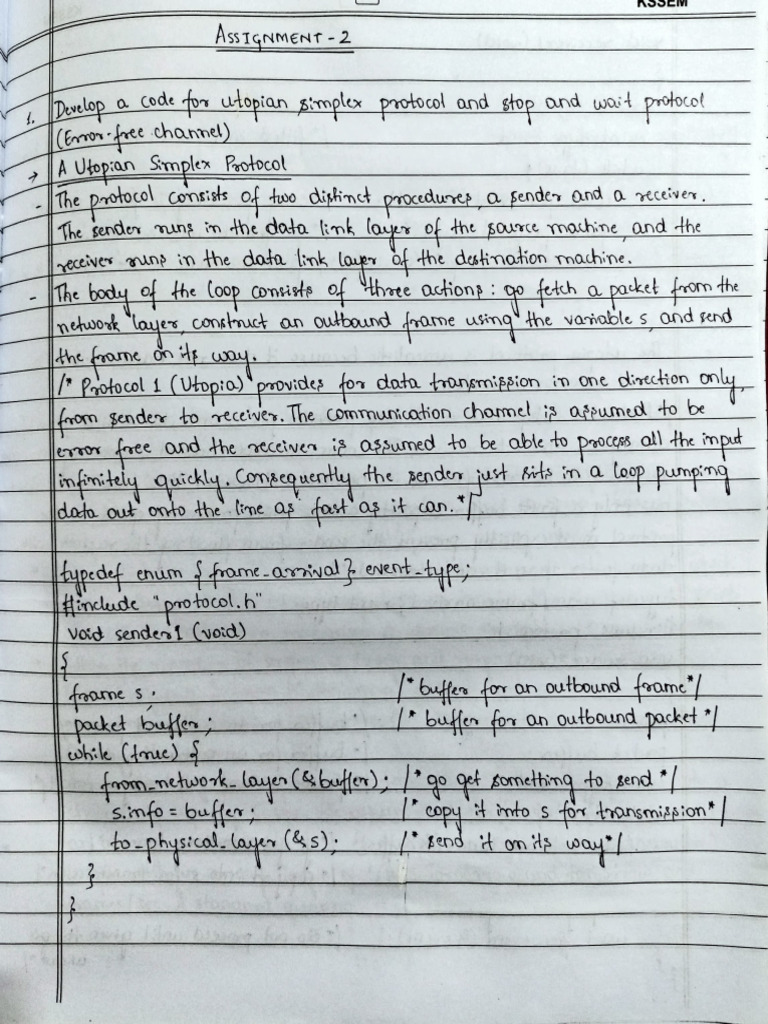 KSSEM
ASSIGNMENT - 2
1. Develop a code for utopian simplex protocol and stop and wait protocol
(Error-free channel)
→ A Utopian Simplex Protocol
- The protocol consists of two distinct procedures, a sender and a receiver.
The sender runs in the data link layer of the source machine, and the
receiver runs in the data link layer of the destination machine.
- The body of the loop consists of three actions: go fetch a packet from the
network layer, construct an outbound frame using the variable s, and send
the frame on its way.
/* Protocol 1 (Utopia) provides for data transmission in one direction only,
from sender to receiver. The communication channel is assumed to be
error free and the receiver is assumed to be able to process all the input
infinitely quickly. Consequently the sender just sits in a loop pumping
data out onto the line as fast as it can. */
typedef enum { frame_arrival } event_type;
#include "protocol.h"
void sender1 (void)
{
frame s; /* buffer for an outbound frame */
packet buffer; /* buffer for an outbound packet */
while (true) {
from_network_layer (&buffer); /* go get something to send */
s.info = buffer; /* copy it into s for transmission */
to_physical_layer (&s); /* send it on its way */
}
}